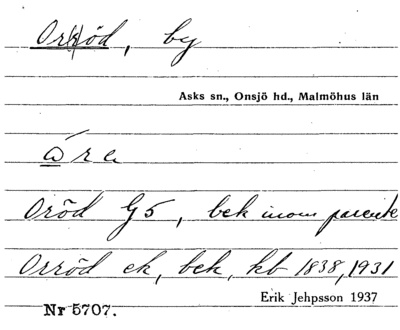 Orröd, by
Asks sn., Onsjö hd., Malmöhus län
Oröd G5, bek inom parente
Orröd ek, bek, kb 1838, 1931
Erik Jehpsson 1937
Nr 5707.